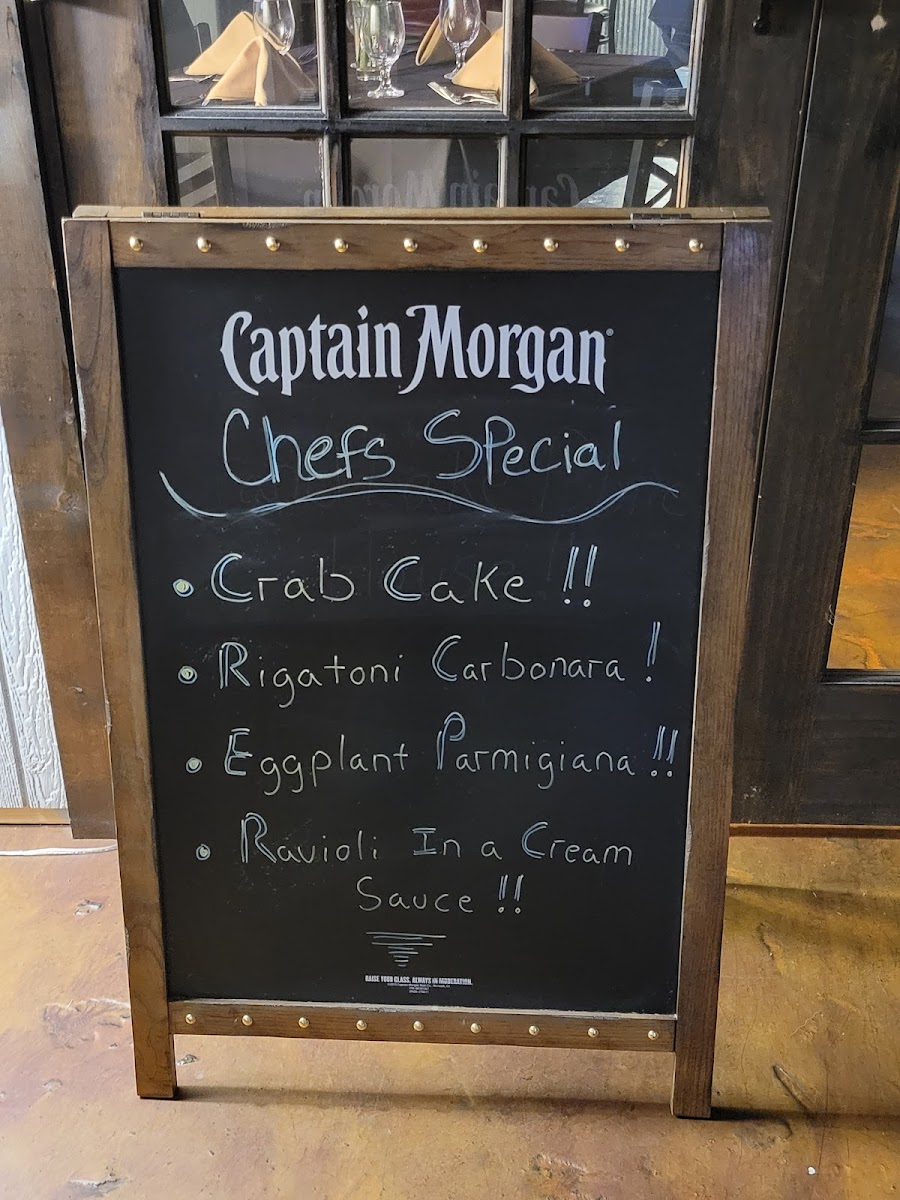 Captain Morgan
Chefs Special
• Crab Cake !!
• Rigatoni Carbonara !
• Eggplant Parmigiana !!
• Ravioli In a Cream
Sauce !!
RAISE YOUR GLASS. ALWAYS IN MODERATION.